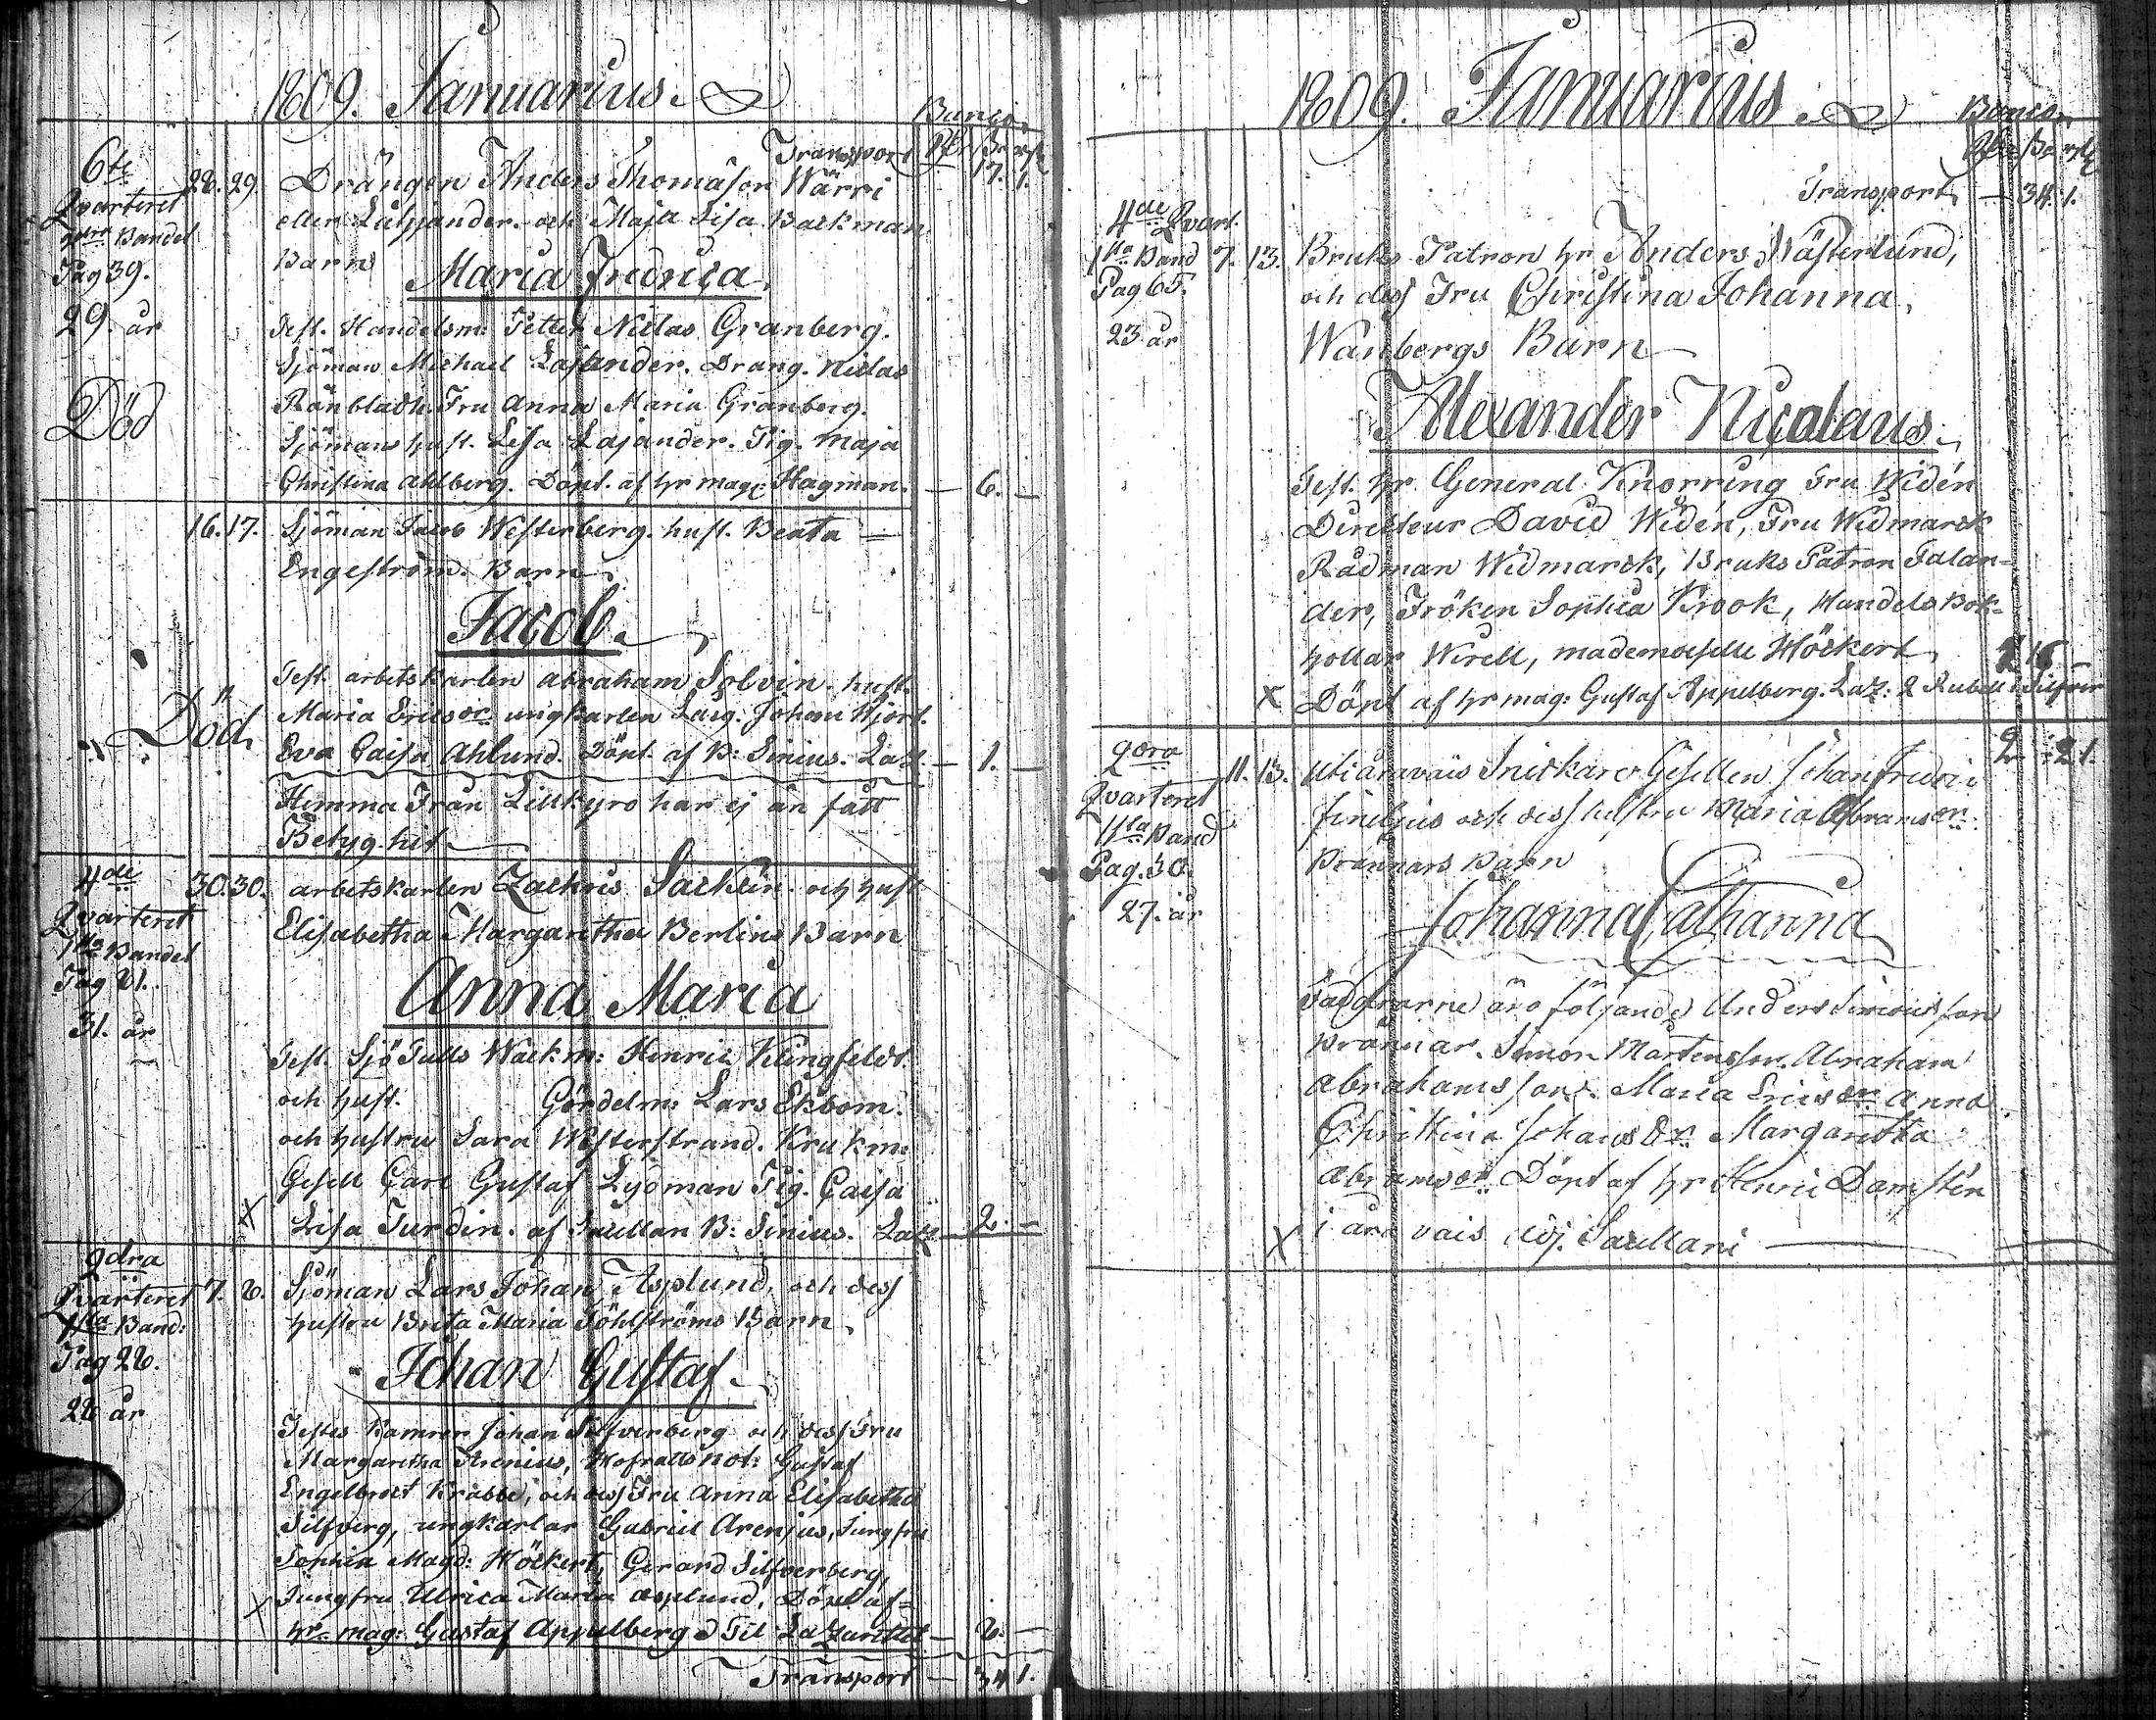 1809. Januarius.
Banco.
Transport 17. 1.
6te
Qvarteret
Bandel
Pag 39.
29. år
Död
28. 29. Drängen Anders Thomason Wärri
eller och Maja Lisa Backman
Barn
Maria Fredrica
Test. Handelsm: Petter Niclas Granberg.
Sjöman Michael Lajander. Dräng. Niclas
Rönbladh. Fru Anna Maria Granberg.
Sjömans hust. Lisa Lajander. Pig. Maja
Christina Ahlberg. Döpt. af hr mag: Hagman. — 6. —
16. 17. Sjöman Jacob Westerberg. hust. Beata —
Engeström. Barn
Jacob.
Död
Test. arbetskarlen abraham Solvin. hust.
Maria Ericsdr. ungkarlen Johan Hjort.
Eva Caisa Ahlund. Döpt. af B: Sinius. Laz. — 1. —
Hemma Från Lillkyro har ej än fått
Betyg hit
4de
Qvarteret
1sta Bandel
Pag 21.
31. år
30. 30. arbetskarlen Zachris Sacklin. och hust
Elisabetha Margaretha Berlins Barn
Anna Maria
Test. Sjö Tulls Wackm: Henric Klingfeldt.
och hust. Gördelm: Lars Ekbom.
och hustru Sara Westerstrand. Krukm:
Gesell Carl Gustaf Lydman Pig. Caisa
X Lisa Turdin. af B: Sinius. Laz. — 2. —
2dra
Qvarteret
1sta Band:
Pag 28.
28 år
7. 8. Sjöman Lars Johan Asplund, och dess
hustru Brita Maria Töhlströms Barn
Johan Gustaf.
Testes Kamrer Johan Silfverberg och dess Fru
Margaretha Arenius, Hofrätts not: Gustaf
Engelbrect Krabbe, och dess Fru Anna Elisabetha
Silfverg, ungkarlar Gabriel Arenjus, Jungfru
Sophia Magd: Höckert, Gerard Silfverberg,
Jungfru Ulrica Maria Asplund, Döpt af
X hr mag: Gustaf Appelberg Til Lazarettet — 8. —
Transport — 34 1.
1809. Januarius
Banco.
Transport — 34. 1.
4de Qvart.
1sta Band
Pag 65.
23 år
7. 13. Bruks Patron hr Anders Wästerlund,
och dess Fru Christina Johanna,
Wänbergs Barn
Alexander Nicolaus.
Test. Hr. General Knorring Fru Widén
Directeur David Widén, Fru Widmarck
Rådman Widmarck, Bruks Patron Falan-
der, Fröken Sophia Krook, Handels Bok-
hollar Wirell, mademoiselle Höckert
X Döpt af hr mag: Gustaf Appelberg. Laz: 2 Rubell i Silfver
2 21.
2dra
Qvarteret
1sta Band
Pag. 30.
27. år
11. 13. Uti åravais Snickare Gesellen Johan Fredric
och dess hustru Maria Abramsdr.
Brännars Barn
Johanna Catharina
Faddrarne äro följande Anders Simonsson
Brännar. Simon Mårtensson. Abraham
Abrahamsson. Maria Ericsdr Anna
Christina Johansdr. Margaretha
Abramsdr Döpt af hr Henric Damsten
X i åra vais